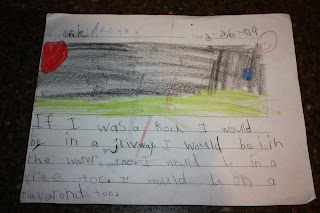 If I was a Rock I would
be in a jrivway I would be in
the water too I would be in a
tree too. I would be in a
too.